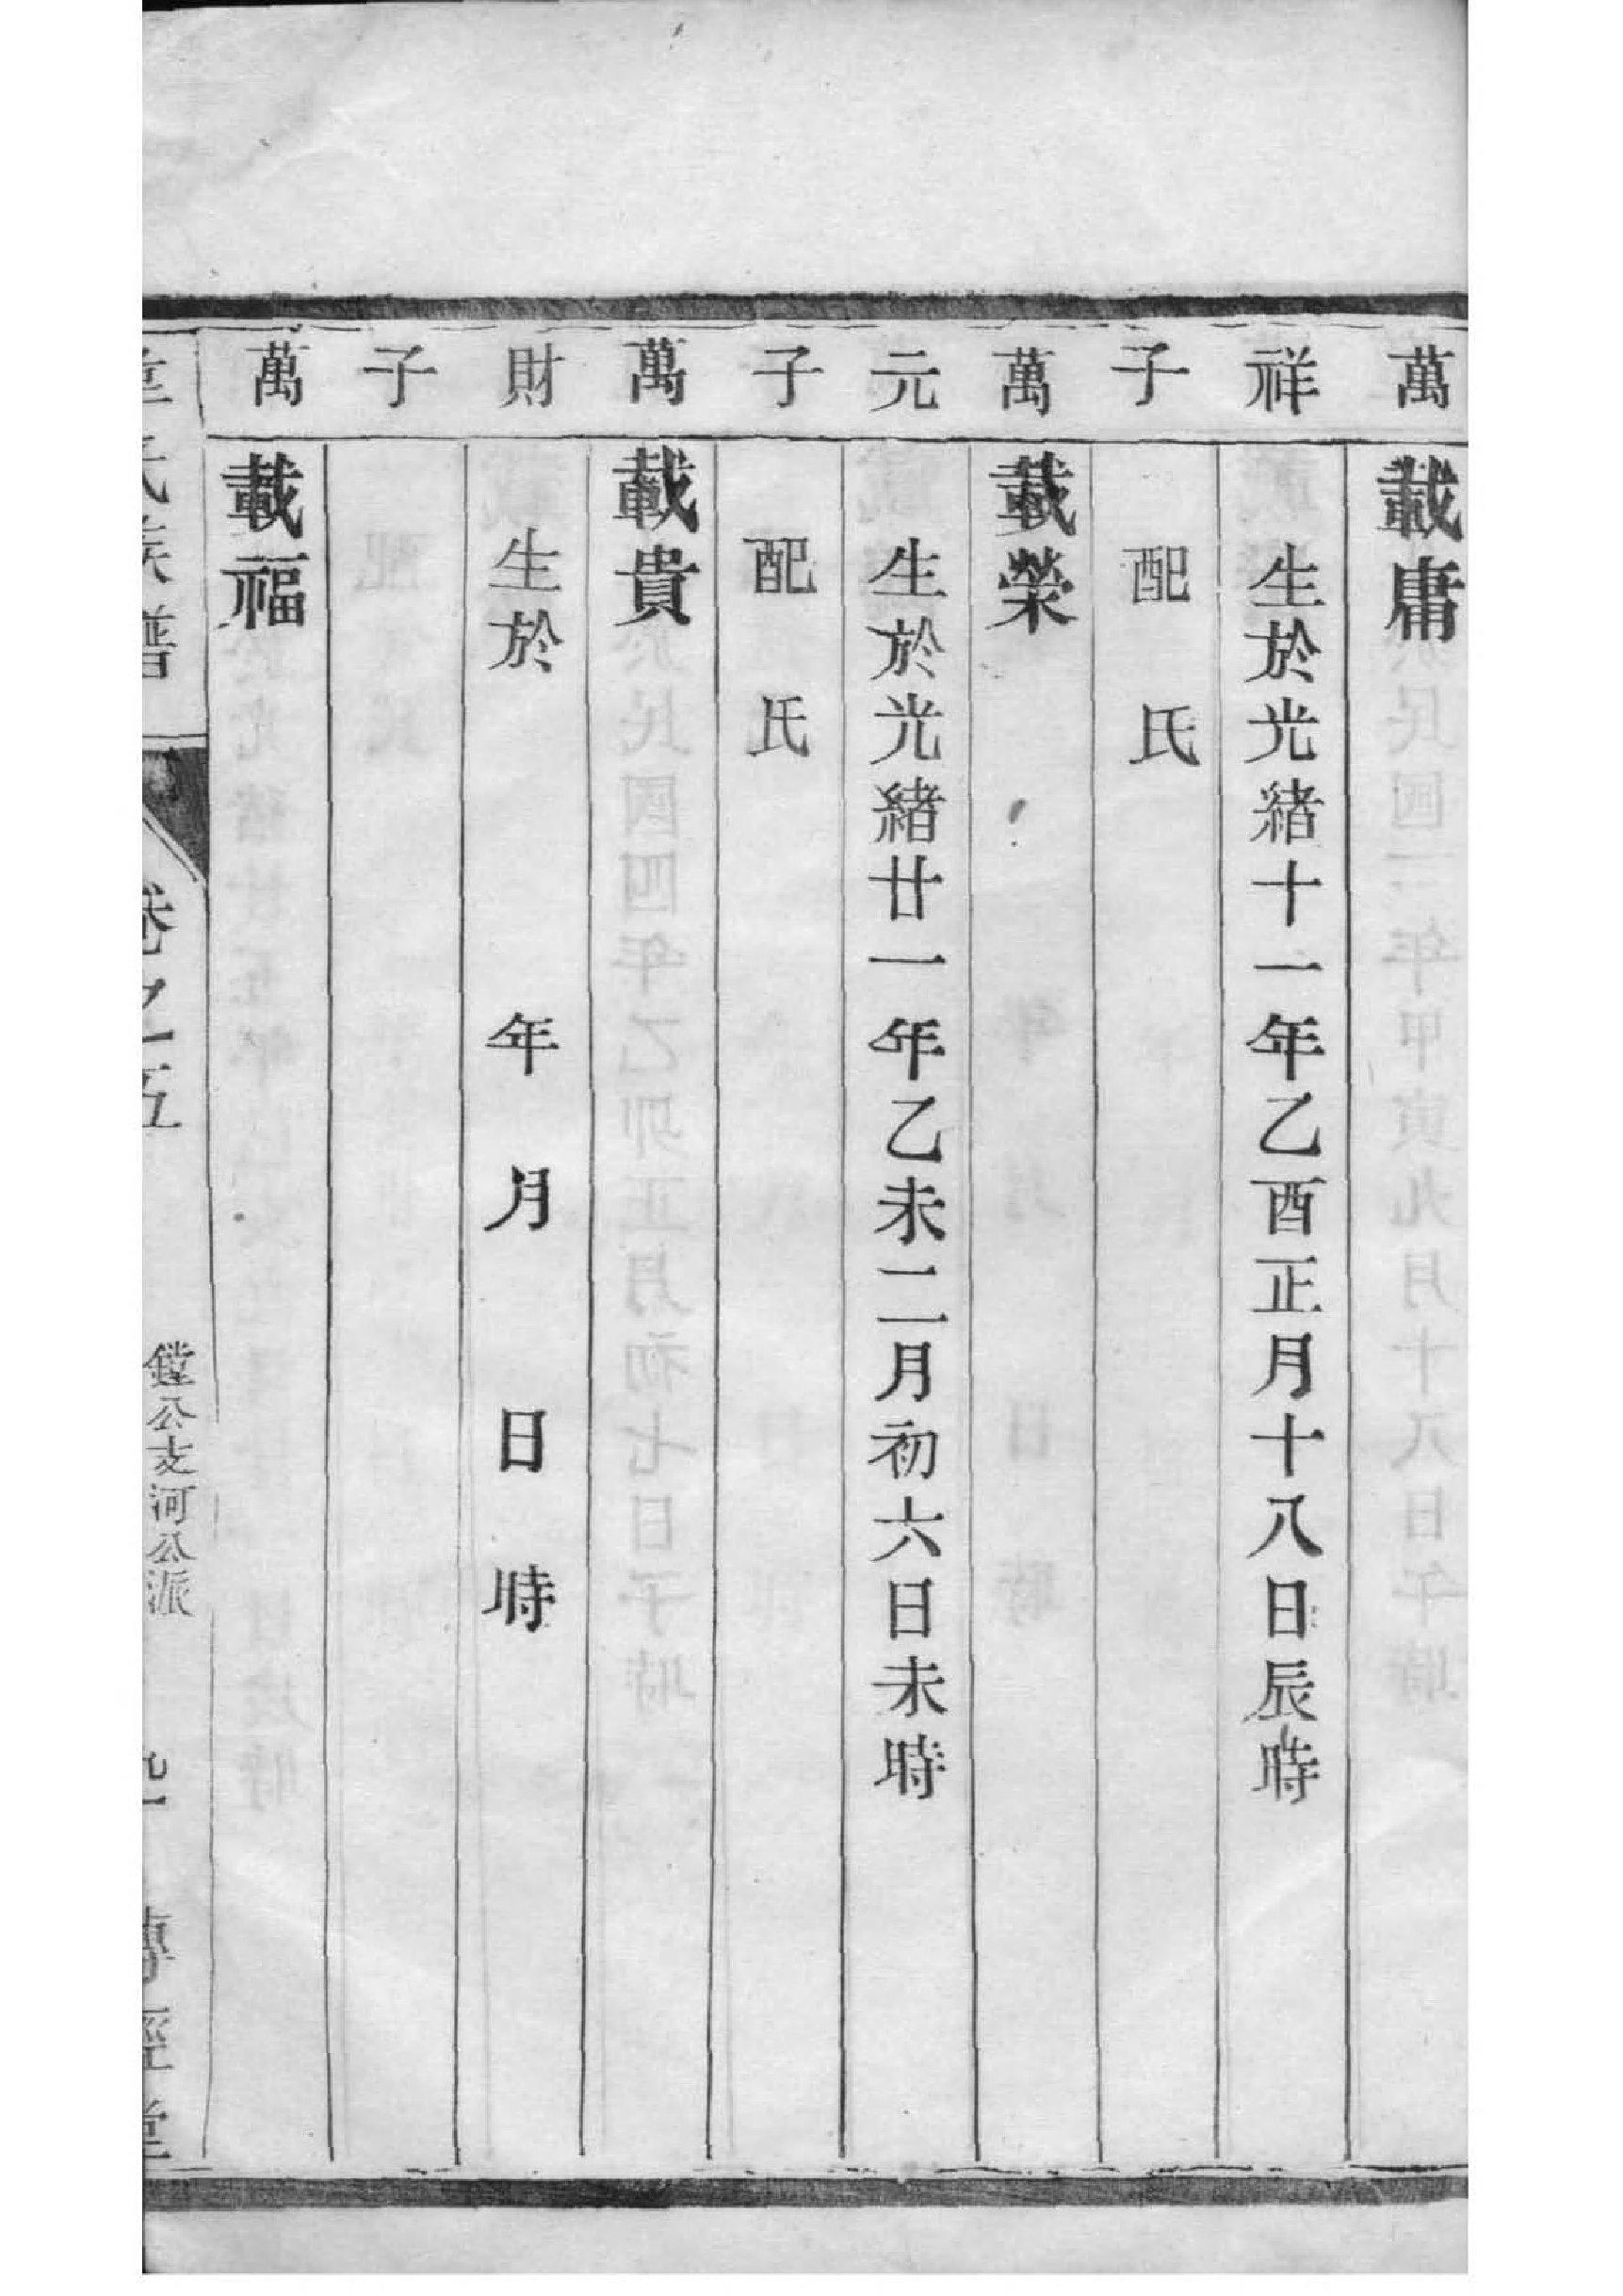 萬
載庸
祥
生於光緒十一年乙酉正月十八日辰時
子
配　氏
萬
載榮
元
生於光緒廿一年乙未二月初六日未時
子
配　氏
萬
載貴
財
生於　年　月　日　時
子
萬
載福
氏族譜
卷之五
鏜公支河公派
九一
經堂